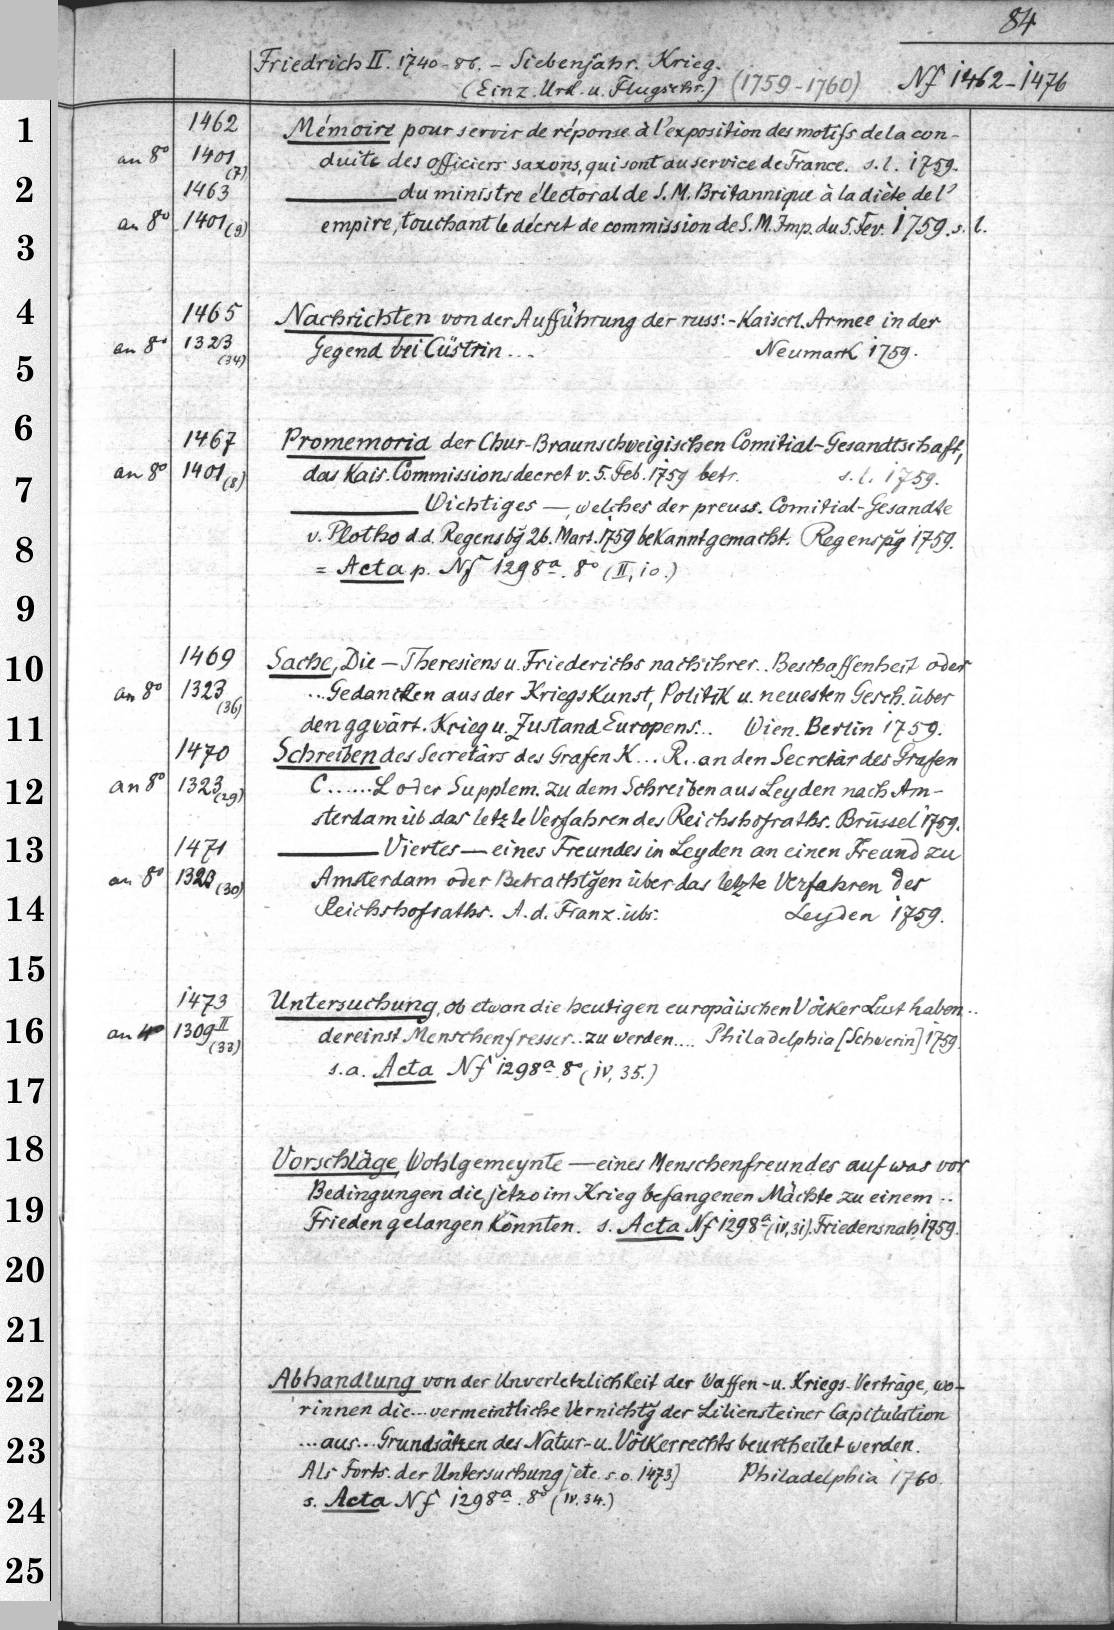 84
Friedrich II. 1740-86. - Siebenjähr. Krieg.
(Einz. Urk. u. Flugschr.) (1759-1760) Nf 1462-1476
1
1462 Mémoire pour servir de réponse à l'exposition des motifs de la con-
an 8° 1401 (7) duite des officiers saxons, qui sont au service de France. s. l. 1759.
2
1463 ——— du ministre électoral de S. M. Britannique à la diète de l'
an 8° 1401 (9) empire, touchant le décret de commission de S. M. Imp. du 5. Fev. 1759. s. l.
3
4
1465 Nachrichten von der Aufführung der russ:-Kaiserl. Armee in der
an 8° 1323 (34) Gegend bei Cüstrin ... Neumark 1759.
5
6
1467 Promemoria der Chur-Braunschweigischen Comitial-Gesandtschaft,
an 8° 1401 (8) das Kais. Commissionsdecret v. 5. Feb. 1759 betr. s. l. 1759.
7
——— Wichtiges —, welches der preuss. Comitial-Gesandte
8
v. Plotho d. d. Regensbg 26. Mart. 1759 bekannt gemacht. Regenspg 1759.
= Acta p. Nf 1298a. 8° (II, 10.)
9
10
1469 Sache, Die — Theresiens u. Friederichs nach ihrer .. Beschaffenheit oder
an 8° 1323 (36) ... Gedancken aus der Kriegskunst, Politik u. neuesten Gesch. über
11
den ggwärt. Krieg u. Zustand Europens... Wien. Berlin 1759.
1470 Schreiben des Secretärs des Grafen K... R.. an den Secretär des Grafen
12
an 8° 1323 (29) C......L oder Supplem. zu dem Schreiben aus Leyden nach Am-
sterdam üb das letzte Verfahren des Reichshofraths. Brüssel 1759.
13
1471 ——— Viertes — eines Freundes in Leyden an einen Freund zu
an 8° 1323 (30) Amsterdam oder Betrachtgen über das letzte Verfahren des
14
Reichshofraths. A. d. Franz. übs: Leyden 1759.
15
1473 Untersuchung, ob etwan die heutigen europäischen Völker Lust haben ..
16
an 4° 1309 II (33) dereinst Menschenfresser .. zu werden.... Philadelphia [Schwerin] 1759.
s. a. Acta Nf 1298a. 8° (IV, 35.)
17
18
Vorschläge, Wohlgemeynte — eines Menschenfreundes auf was vor
19
Bedingungen die jetzo im Krieg befangenen Mächte zu einem ..
Frieden gelangen könnten. s. Acta Nf 1298a (IV, 31). Friedensnah, 1759.
20
21
22
Abhandlung von der Unverletzlichkeit der Waffen- u. Kriegs-Verträge, wo-
rinnen die ... vermeintliche Vernichtg der Liliensteiner Capitulation
23
... aus .. Grundsätzen des Natur- u. Völkerrechts beurtheilet werden.
Als Forts. der Untersuchung [etc. s. o. 1473] Philadelphia 1760.
24
s. Acta Nf 1298a. 8° (IV. 34.)
25